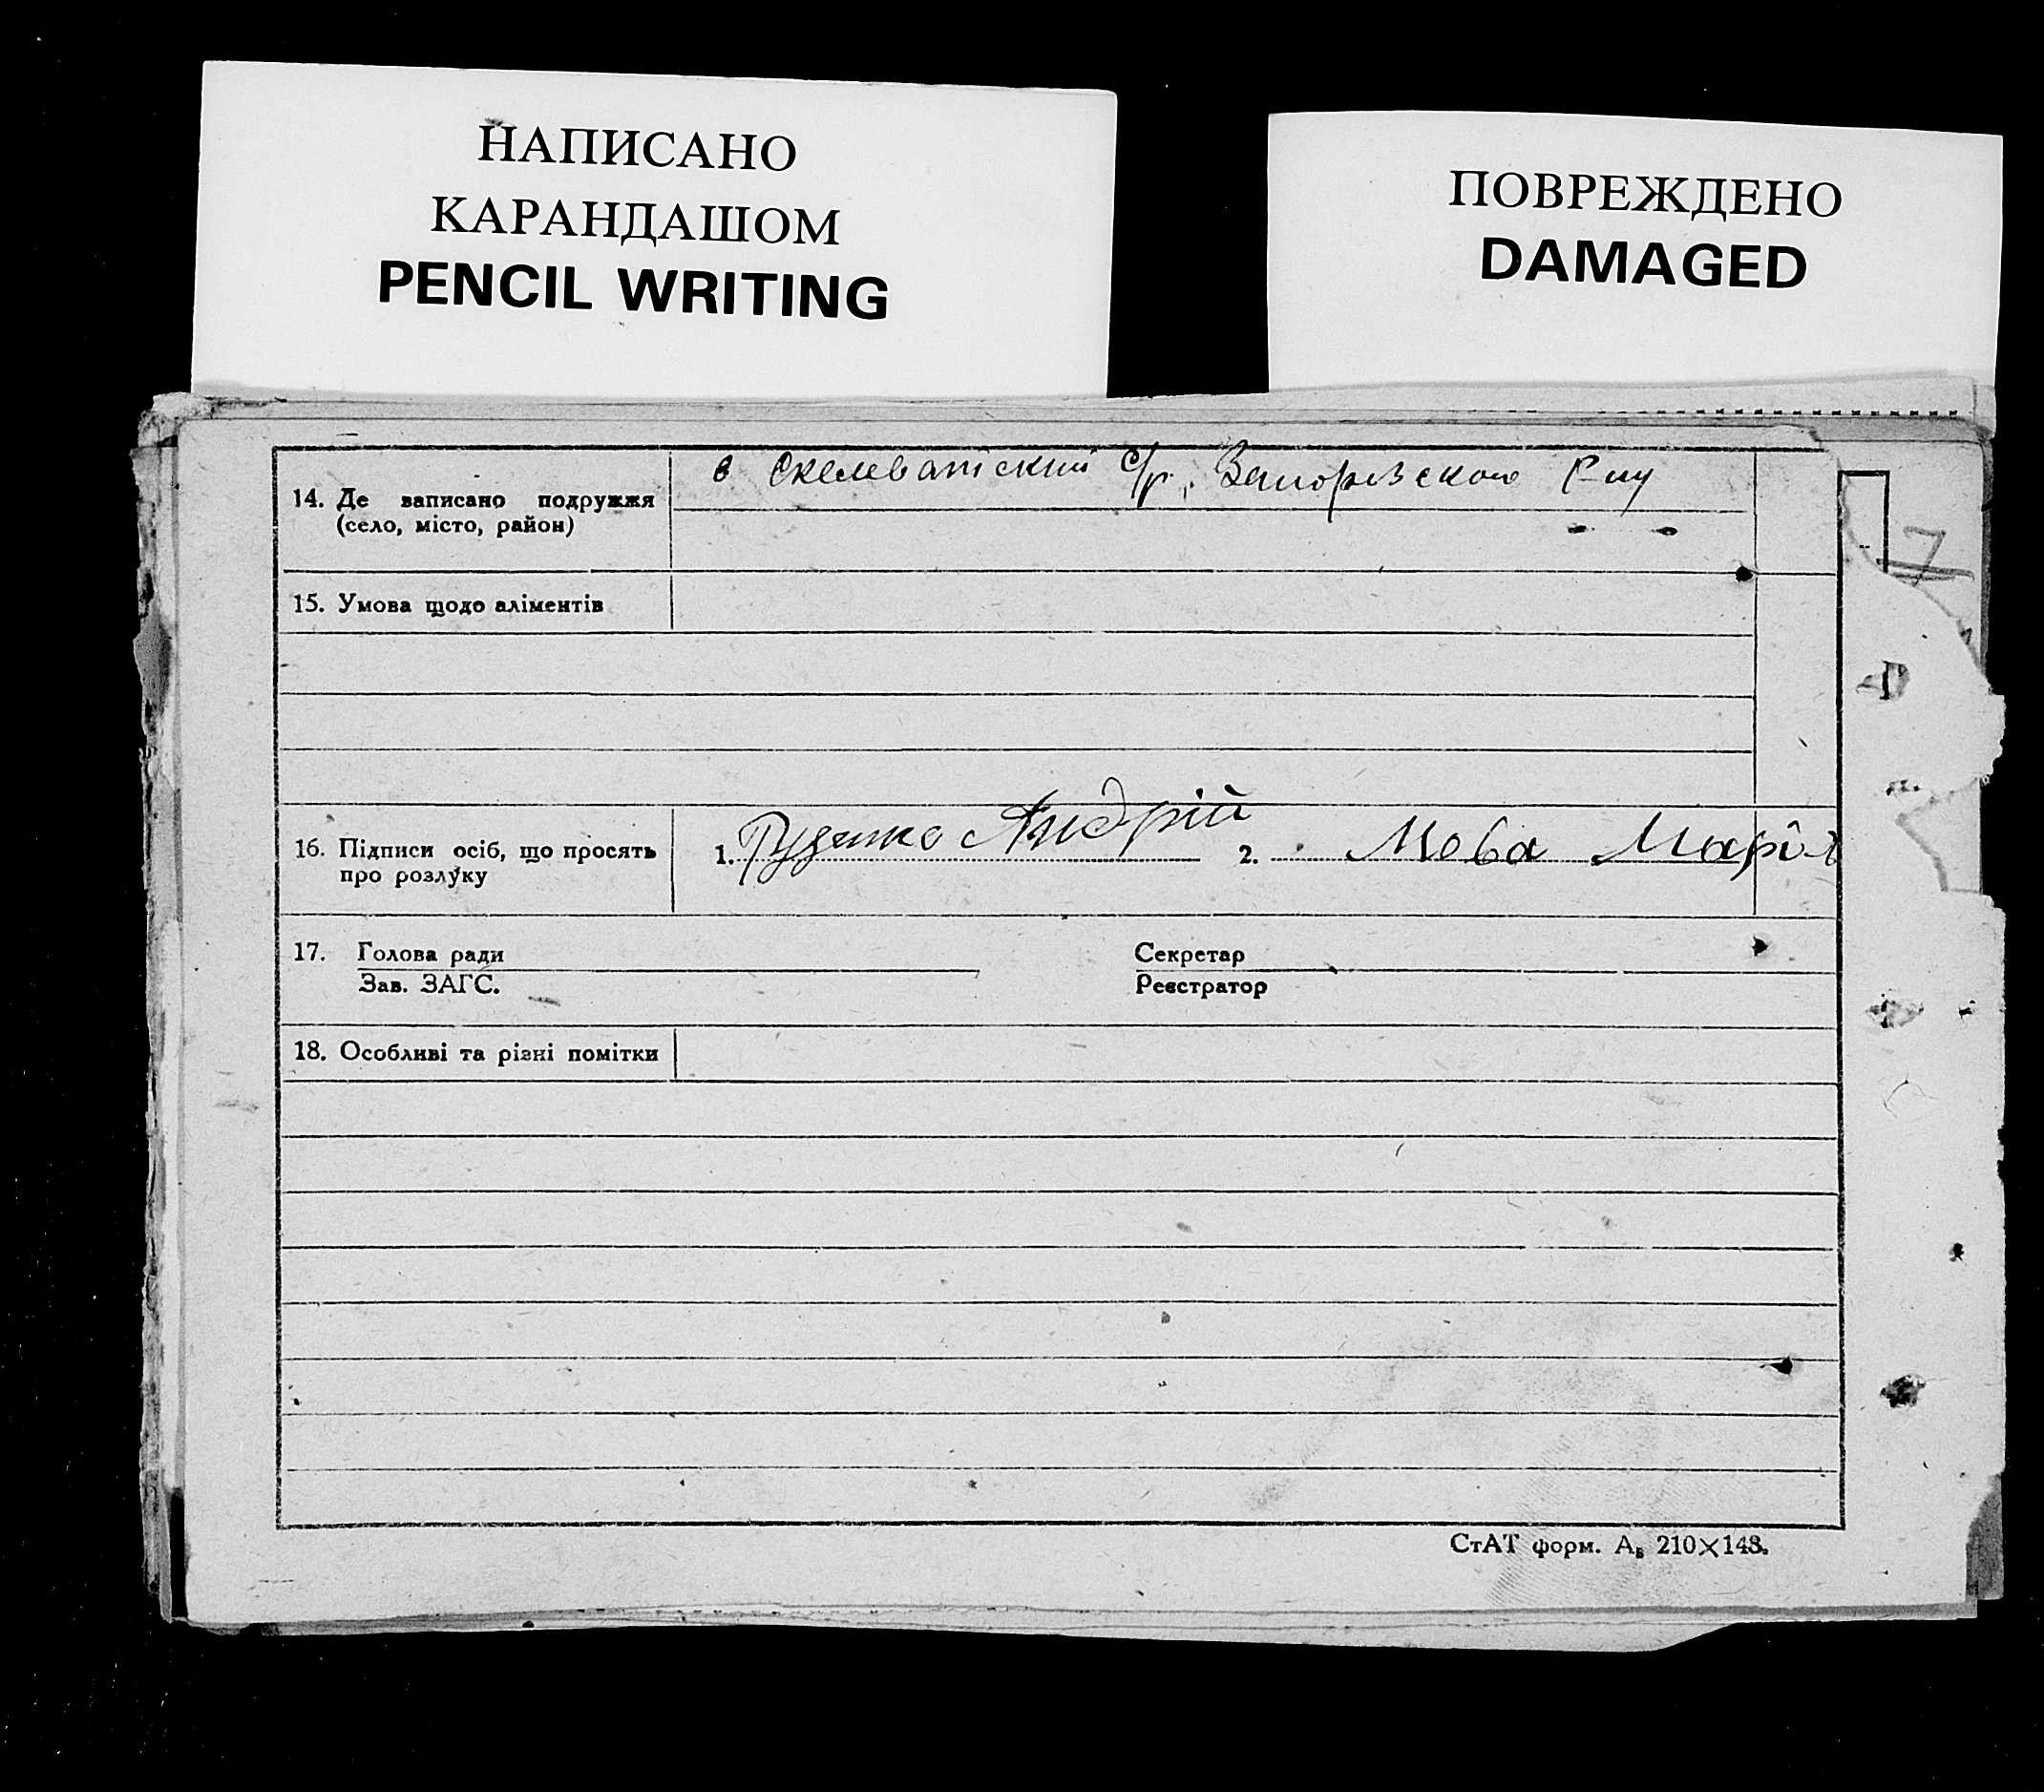 НАПИСАНО
КАРАНДАШОМ
PENCIL WRITING
ПОВРЕЖДЕНО
DAMAGED
14. Де записано подружжя
(село, місто, район)
в Скелеватский с/р, Запорізского Р-ну
7
15. Умова щодо аліментів
16. Підписи осіб, що просять
про розлуку
1. Руденко Андрій 2. Мова Марія
17. Голова ради Секретар
Зав. ЗАГС. Реєстратор
18. Особливі та різні помітки
СтАТ форм. А₅ 210×148.